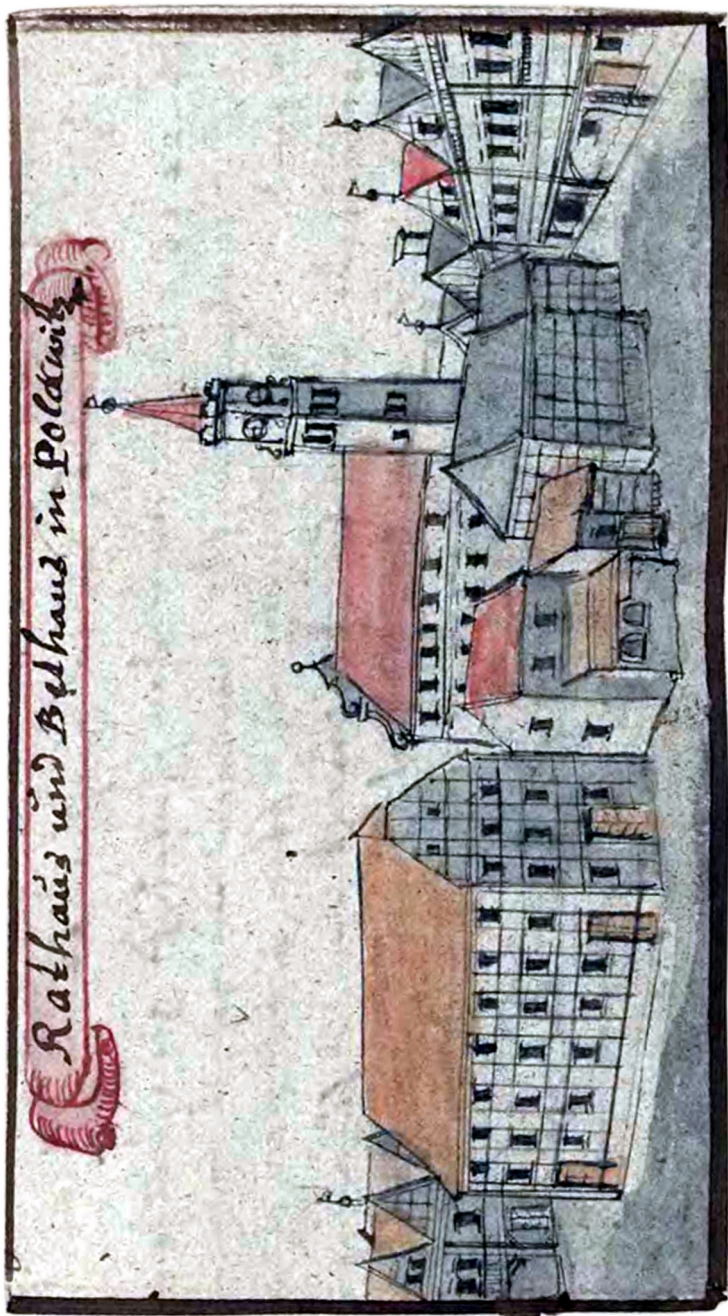 Rathaus und Bethaus in Polckwitz